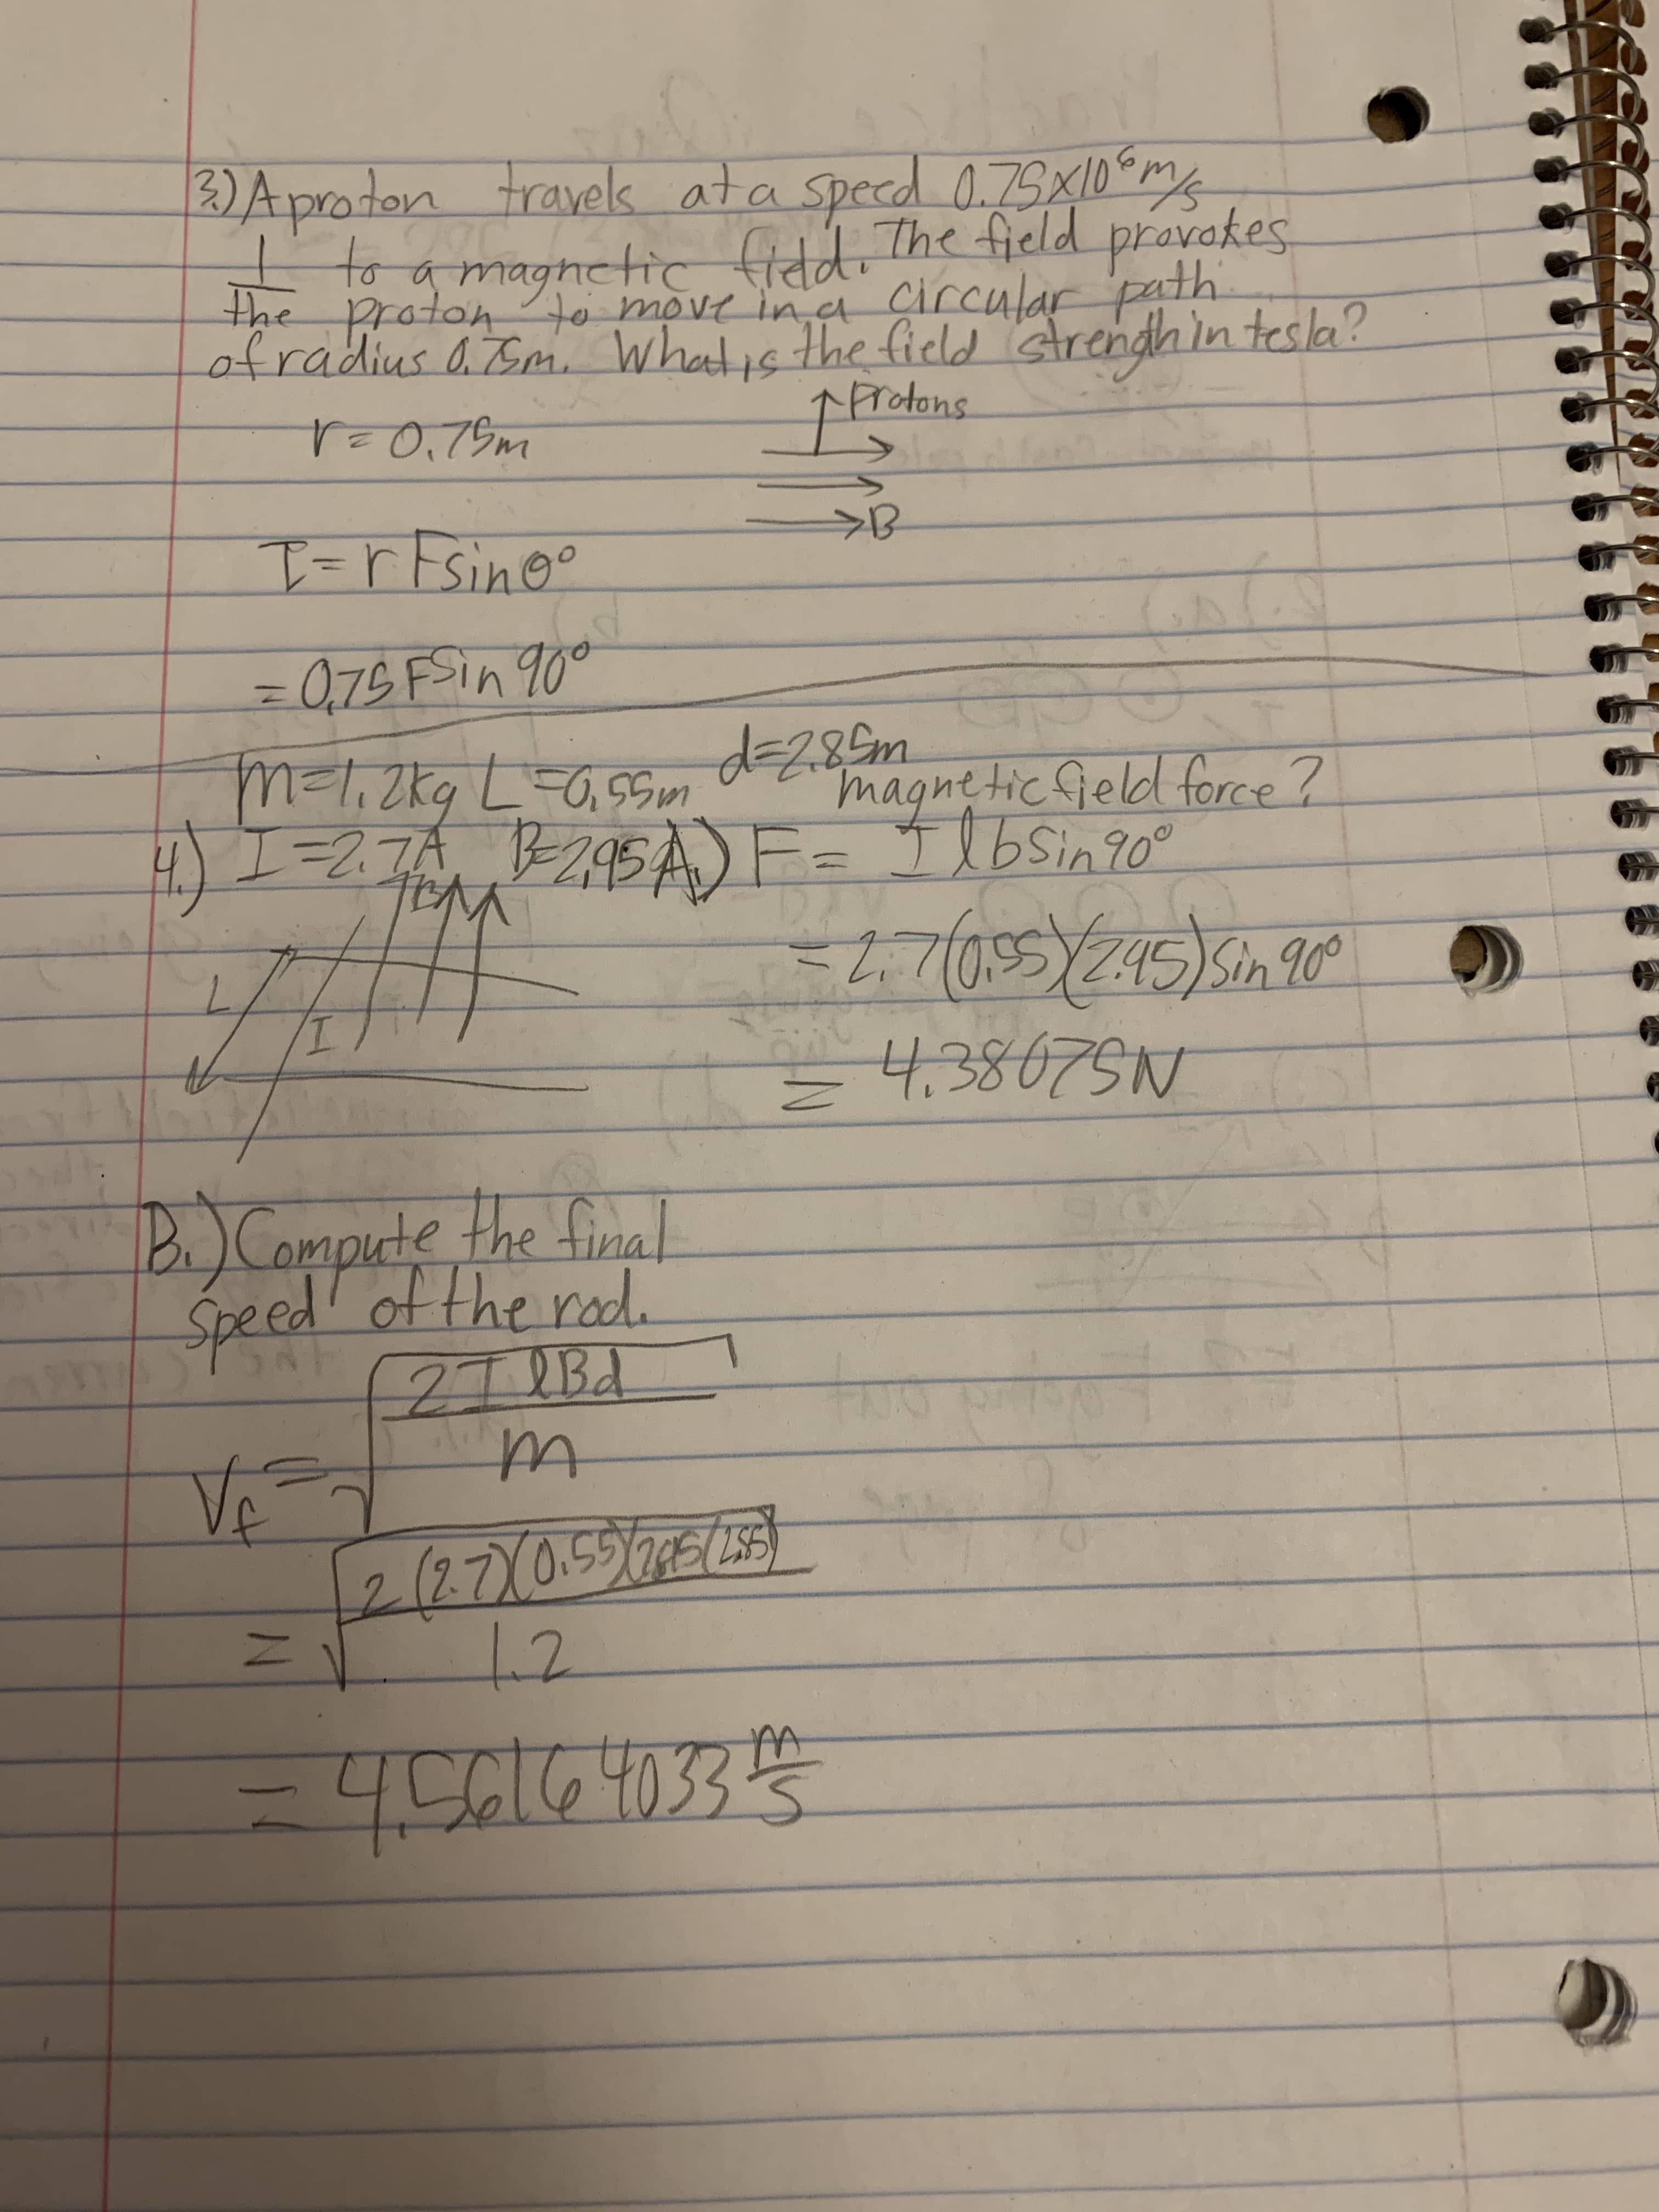 3.) A proton travels at a speed 0.75x10⁶ m/s
⊥ to a magnetic field. The field provokes
the proton to move in a circular path
of radius 0.75m. What is the field strength in tesla?
r = 0.75m
Protons
B
τ = r F sin θ°
= 0.75 F sin 90°
m=1.2kg L=0.55m d=2.85m
magnetic field force?
4.) I=2.7A B=2.95 A.) F = I l b sin 90°
B
= 2.7(0.55)(2.95) sin 90°
L
I
= 4.38075N
B.) Compute the final
speed of the rod.
V_f = √(2IlBd / m)
= √(2(2.7)(0.55)(2.95(2.85) / 1.2)
= 4.56164033 m/s